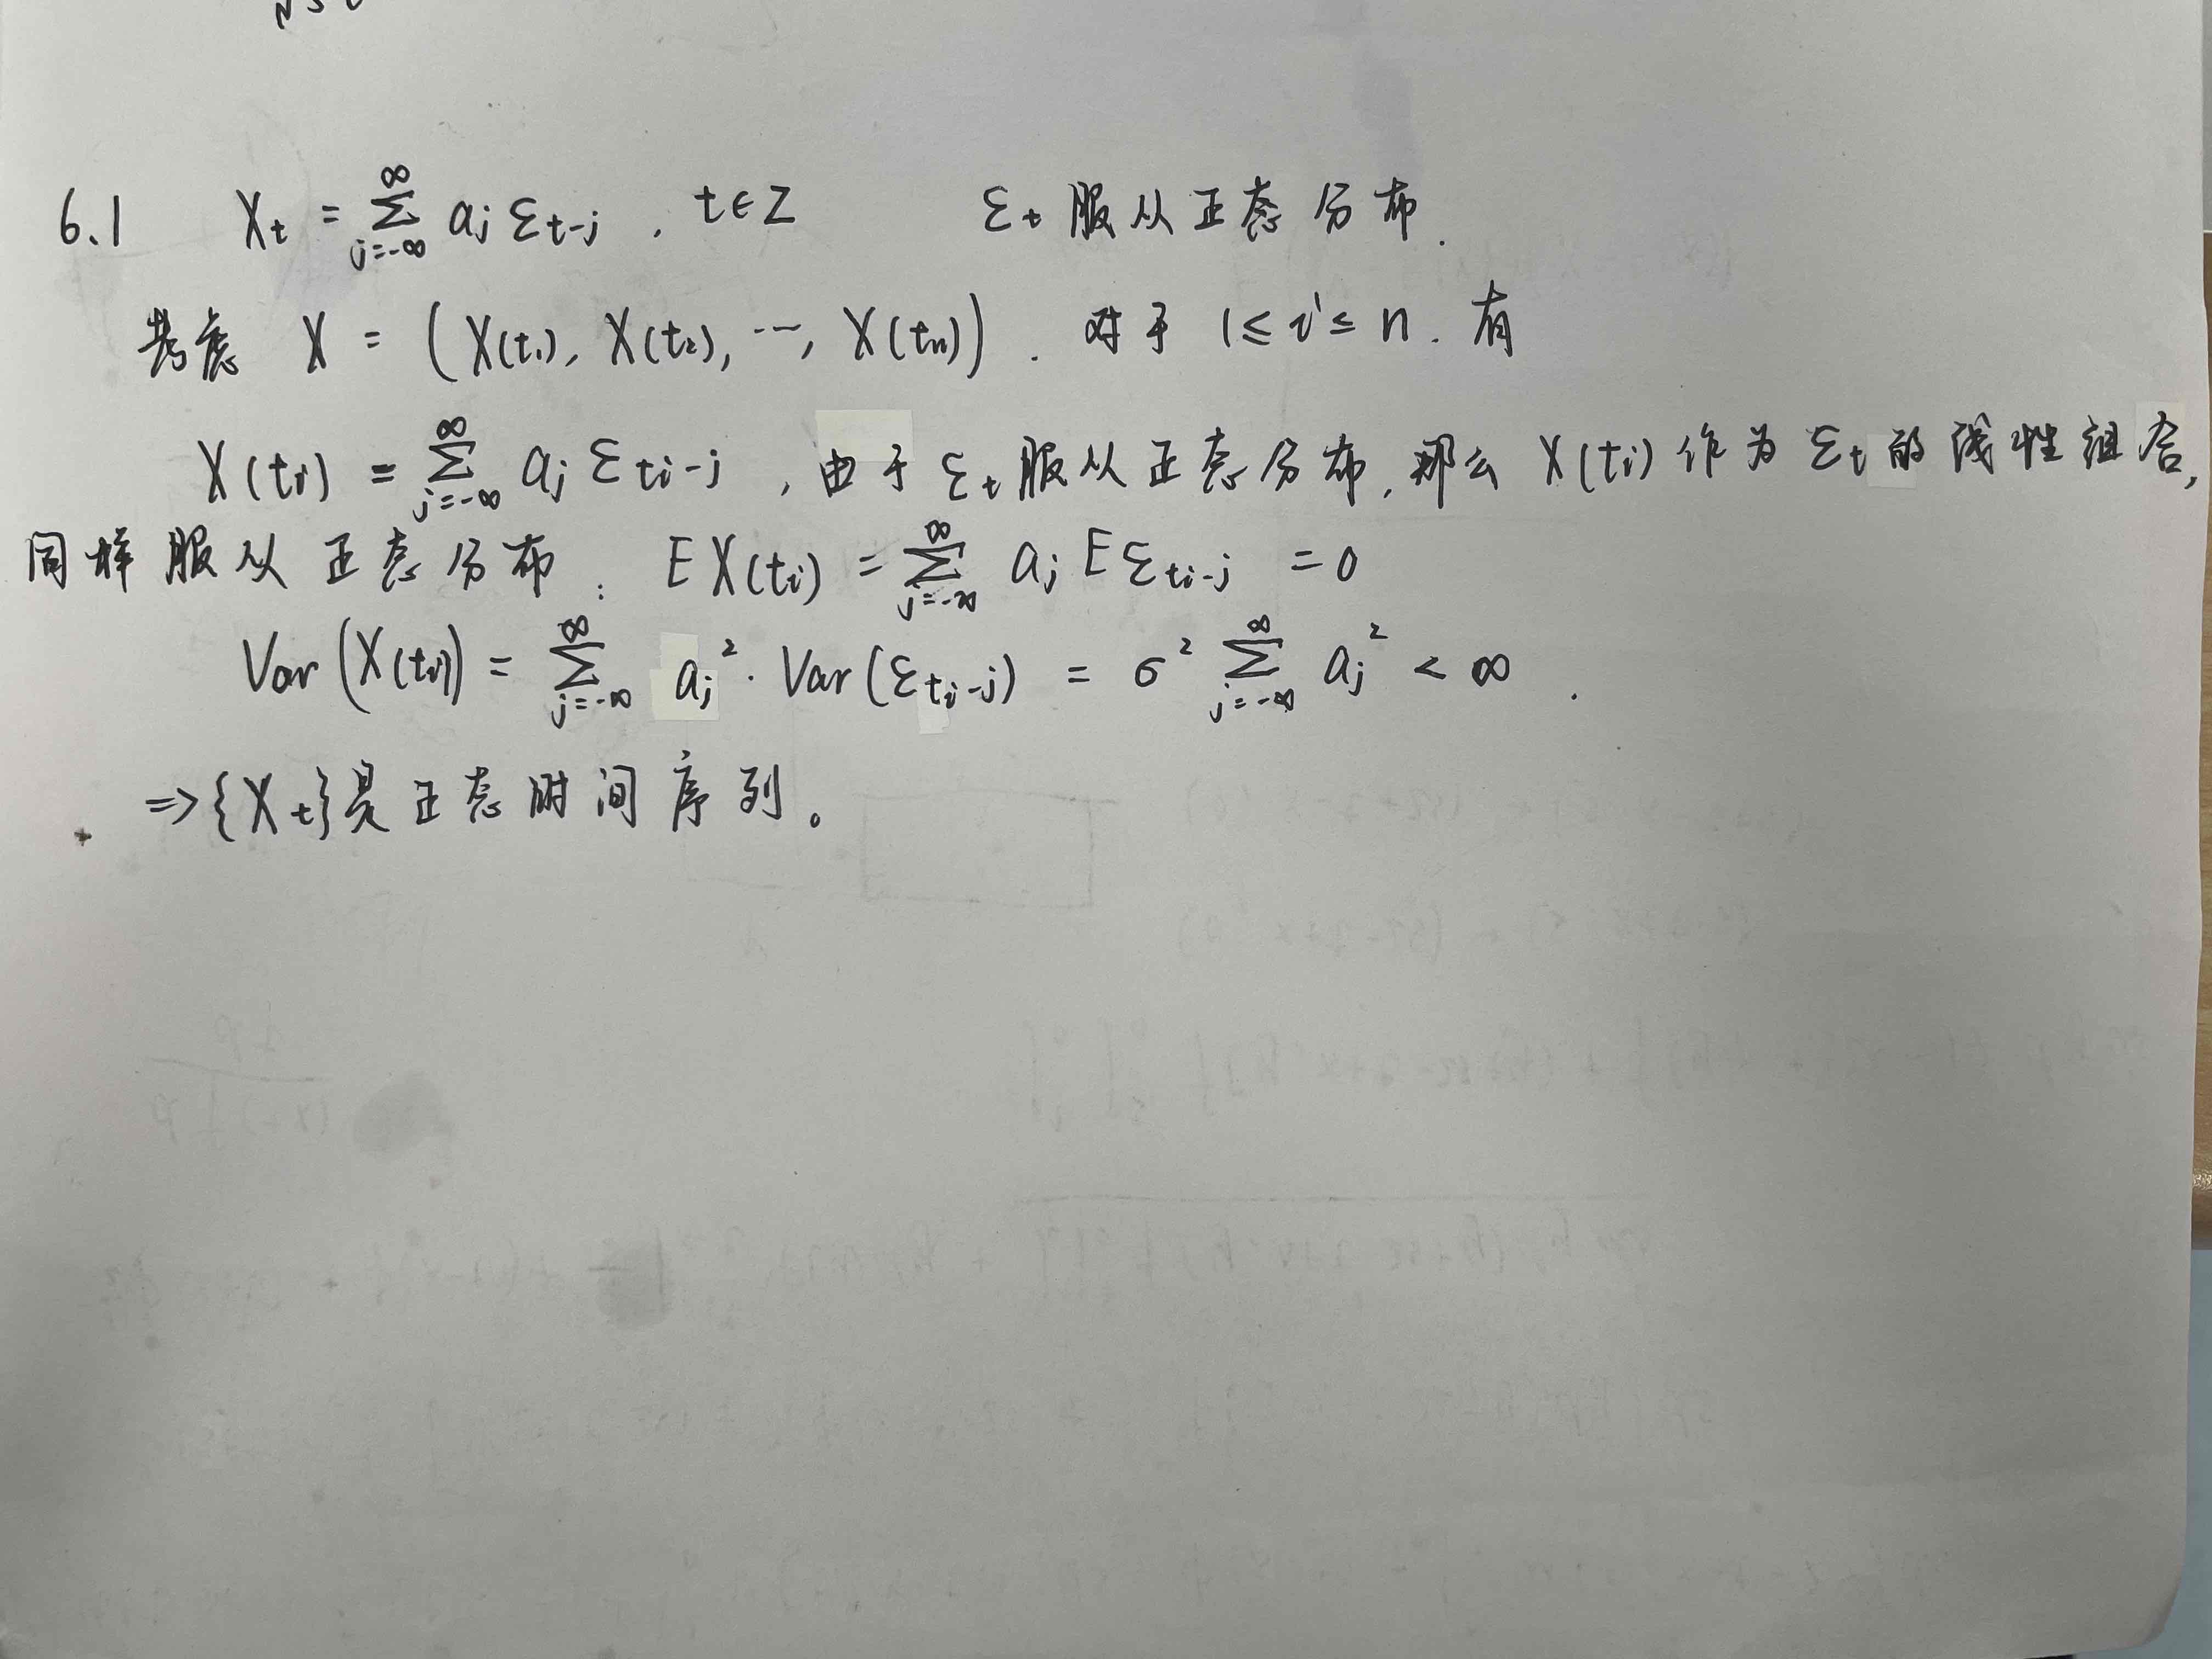 6.1 X_t = \sum_{j=-∞}^{∞} a_j ε_{t-j} . t∈Z ε_t 服从正态分布.
考虑 X = (X(t_1), X(t_2), …, X(t_n)) . 对于 1≤i≤n. 有
X(t_i) = \sum_{j=-∞}^{∞} a_j ε_{t_i-j} , 由于 ε_t 服从正态分布, 那么 X(t_i) 作为 ε_t 的线性组合,
同样服从正态分布: E X(t_i) = \sum_{j=-∞}^{∞} a_j E ε_{t_i-j} = 0
Var(X(t_i)) = \sum_{j=-∞}^{∞} a_j^2 · Var(ε_{t_i-j}) = σ^2 \sum_{j=-∞}^{∞} a_j^2 < ∞ .
⇒{X_t}是正态时间序列。